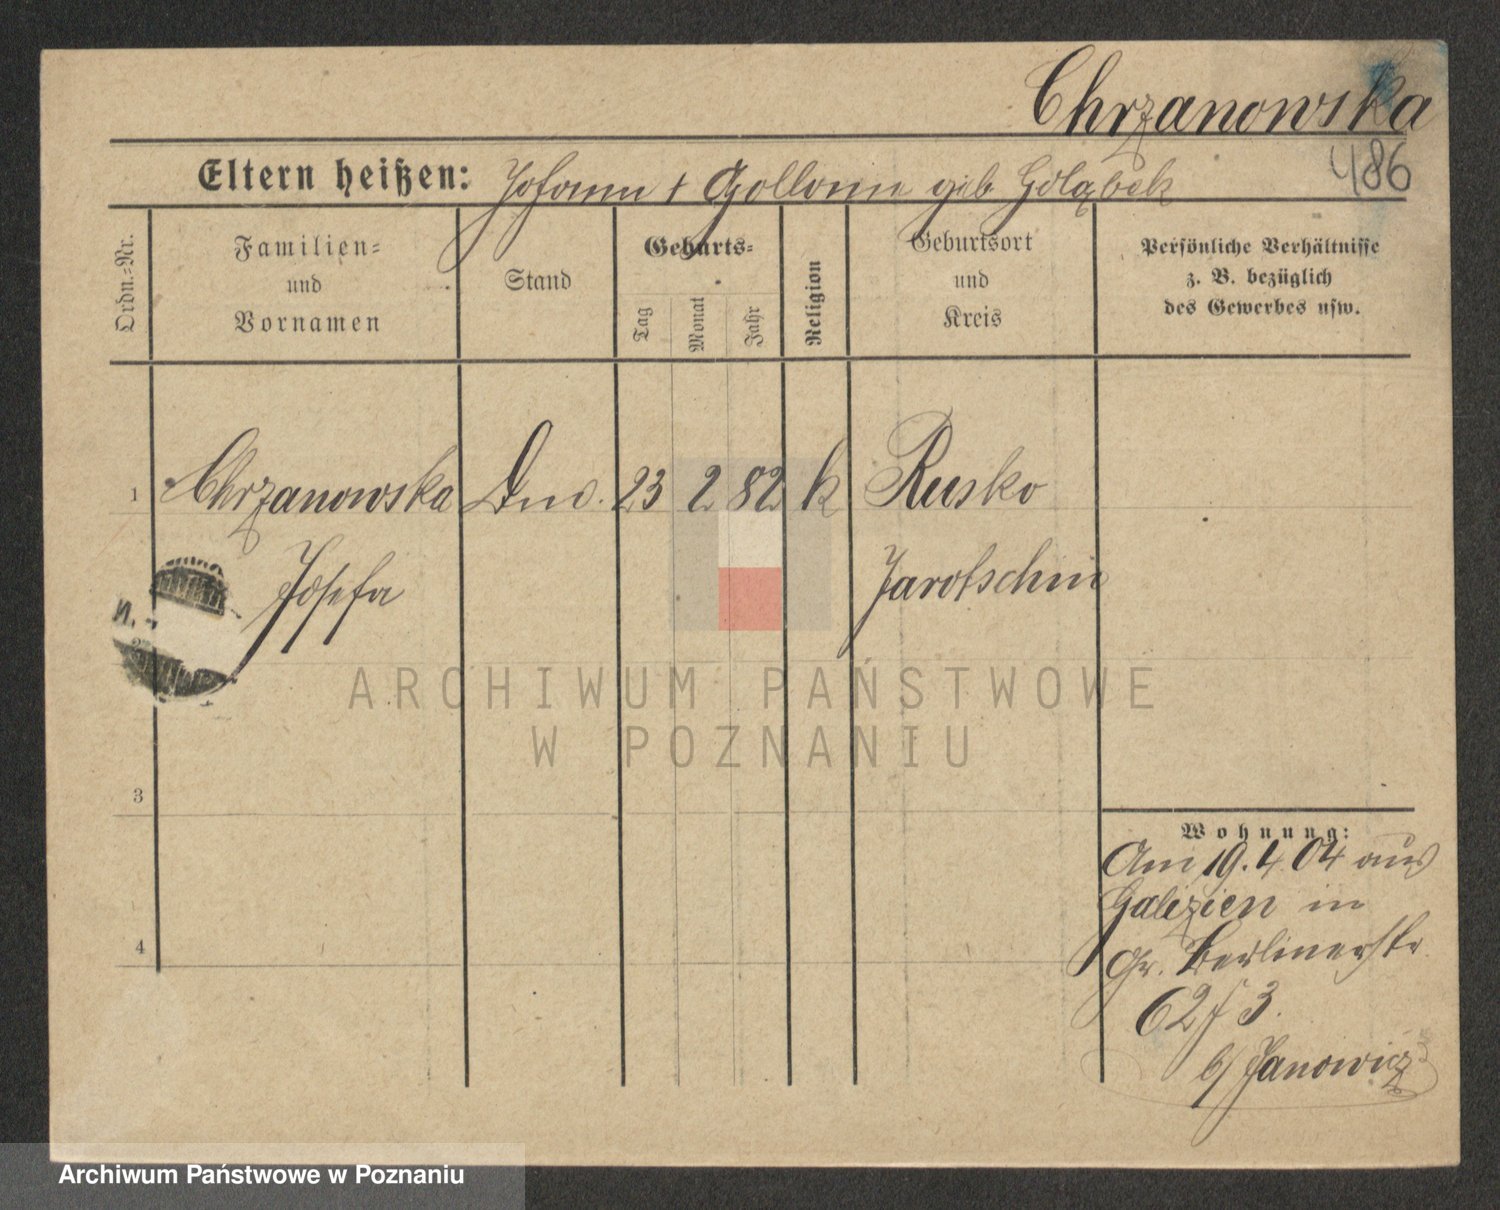 Chrzanowska
486
Eltern heißen: Johann + Apollonie geb Gołąbek
Ordn.-Nr.
Familien-
und
Vornamen
Stand
Geburts-
Tag
Monat
Jahr
Religion
Geburtsort
und
Kreis
Persönliche Verhältnisse
z. B. bezüglich
des Gewerbes usw.
1 Chrzanowska 23 2 82 k Rusko
Josefa Jarotschin
ARCHIWUM PAŃSTWOWE
W POZNANIU
3
4
Wohnung:
Am 19.4 04 aus
Galizien in
Gr. Berlinerstr.
62 3.
b/ Janowicz
Archiwum Państwowe w Poznaniu